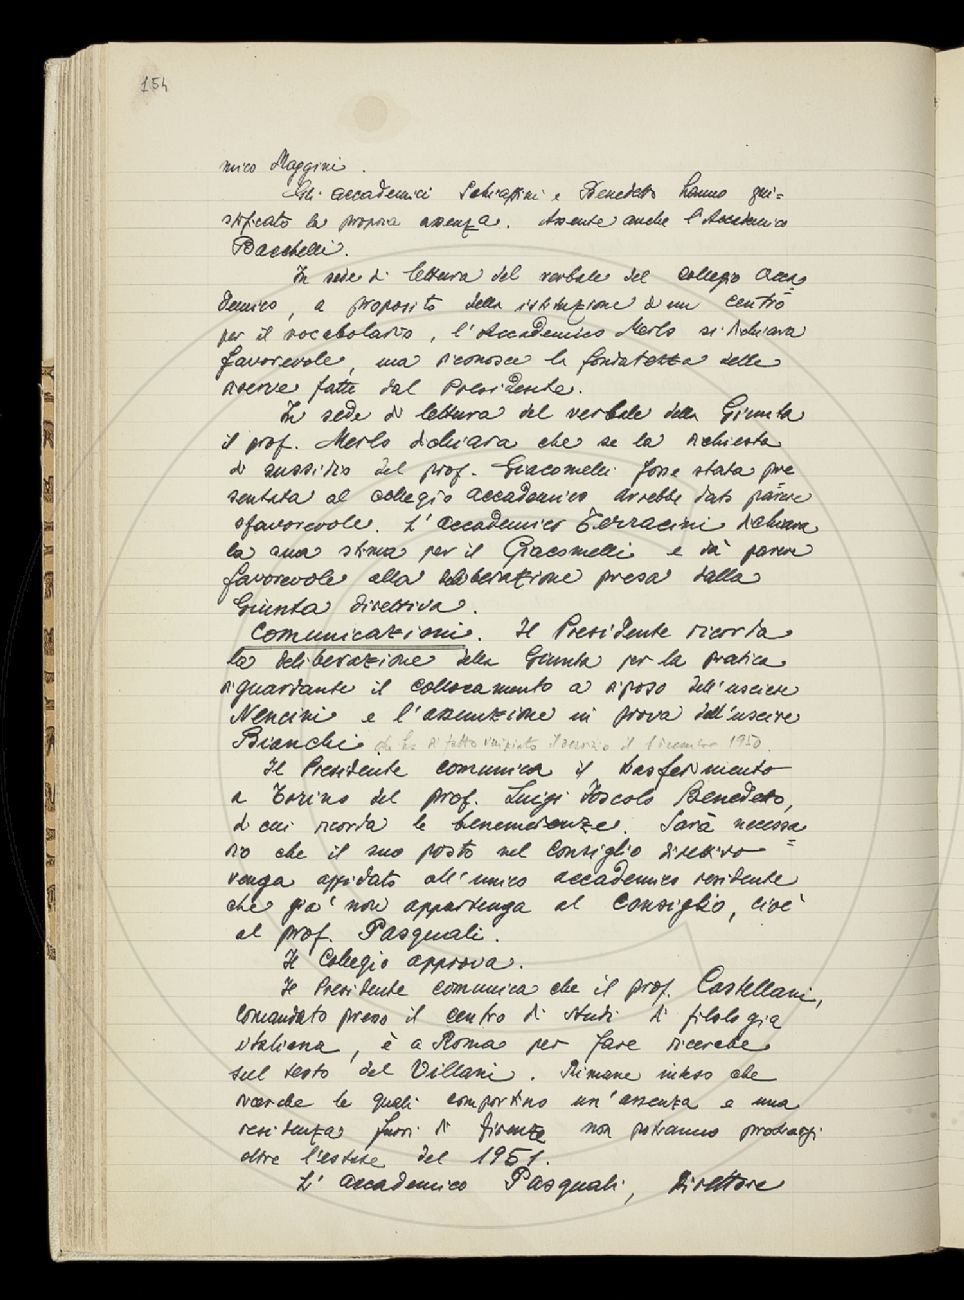 154
mico Maggini.
Gli accademici Schiaffini e Benedetto hanno giu=
stificato la propria assenza. Assente anche l'Accademico
Bacchelli.
In sede di lettura del verbale del collegio acca=
demico, a proposito della istituzione di un centro
per il vocabolario, l'Accademico Merlo si dichiara
favorevole, ma riconosce la fondatezza delle
riserve fatte dal Presidente.
In sede di lettura del verbale della Giunta
il prof. Merlo dichiara che se la richiesta
di sussidio del prof. Giacomelli fosse stata pre
sentata al collegio accademico avrebbe dato parere
sfavorevole. L'accademico Terracini dichiara
la sua stima per il Giacomelli e dà parere
favorevole alla deliberazione presa dalla
Giunta direttiva.
Comunicazioni. Il Presidente ricorda
la deliberazione della Giunta per la pratica
riguardante il collocamento a riposo dell'usciere
Nencini e l'assunzione in prova dell'usciere
Bianchi che ha di fatto iniziato il servizio il 1 dicembre 1950.
Il Presidente comunica il trasferimento
a Torino del prof. Luigi Foscolo Benedetto,
di cui ricorda le benemerenze. Sarà necessa=
rio che il suo posto nel Consiglio direttivo
venga affidato all'unico accademico residente
che già non appartenga al Consiglio, cioè
al prof. Pasquali.
Il Collegio approva.
Il Presidente comunica che il prof. Castellani,
comandato presso il centro di studi di filologia
italiana, è a Roma per fare ricerche
sul testo del Villani. Rimane inteso che
ricerche le quali comportino un'assenza e una
residenza fuori di Firenze non potranno protrarsi
oltre l'estate del 1951.
L'accademico Pasquali, Direttore